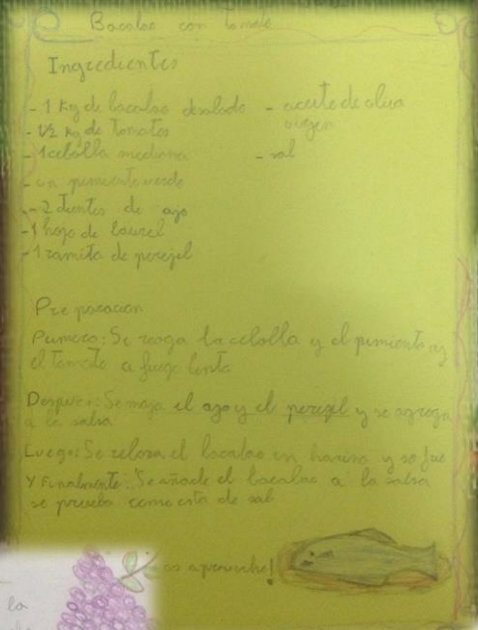 Bacalao con tomate
Ingredientes
- 1 Kg de bacalao desalado
- 1/2 kg de tomates
- 1 cebolla mediana
- un pimiento verde
- 2 dientes de ajo
- 1 hoja de laurel
- 1 ramita de perejil
- aceite de oliva
virgen
- sal
Preparacion
Primero: Se reoga la cebolla y el pimiento y
el tomate a fuego lento
Despues: Se maja el ajo y el perejil y se agrega
a la salsa
Luego: Se reboza el bacalao en harina y se frie
Y Finalmente: Se añade el bacalao a la salsa
se prueba como esta de sal
os aproveche!
la